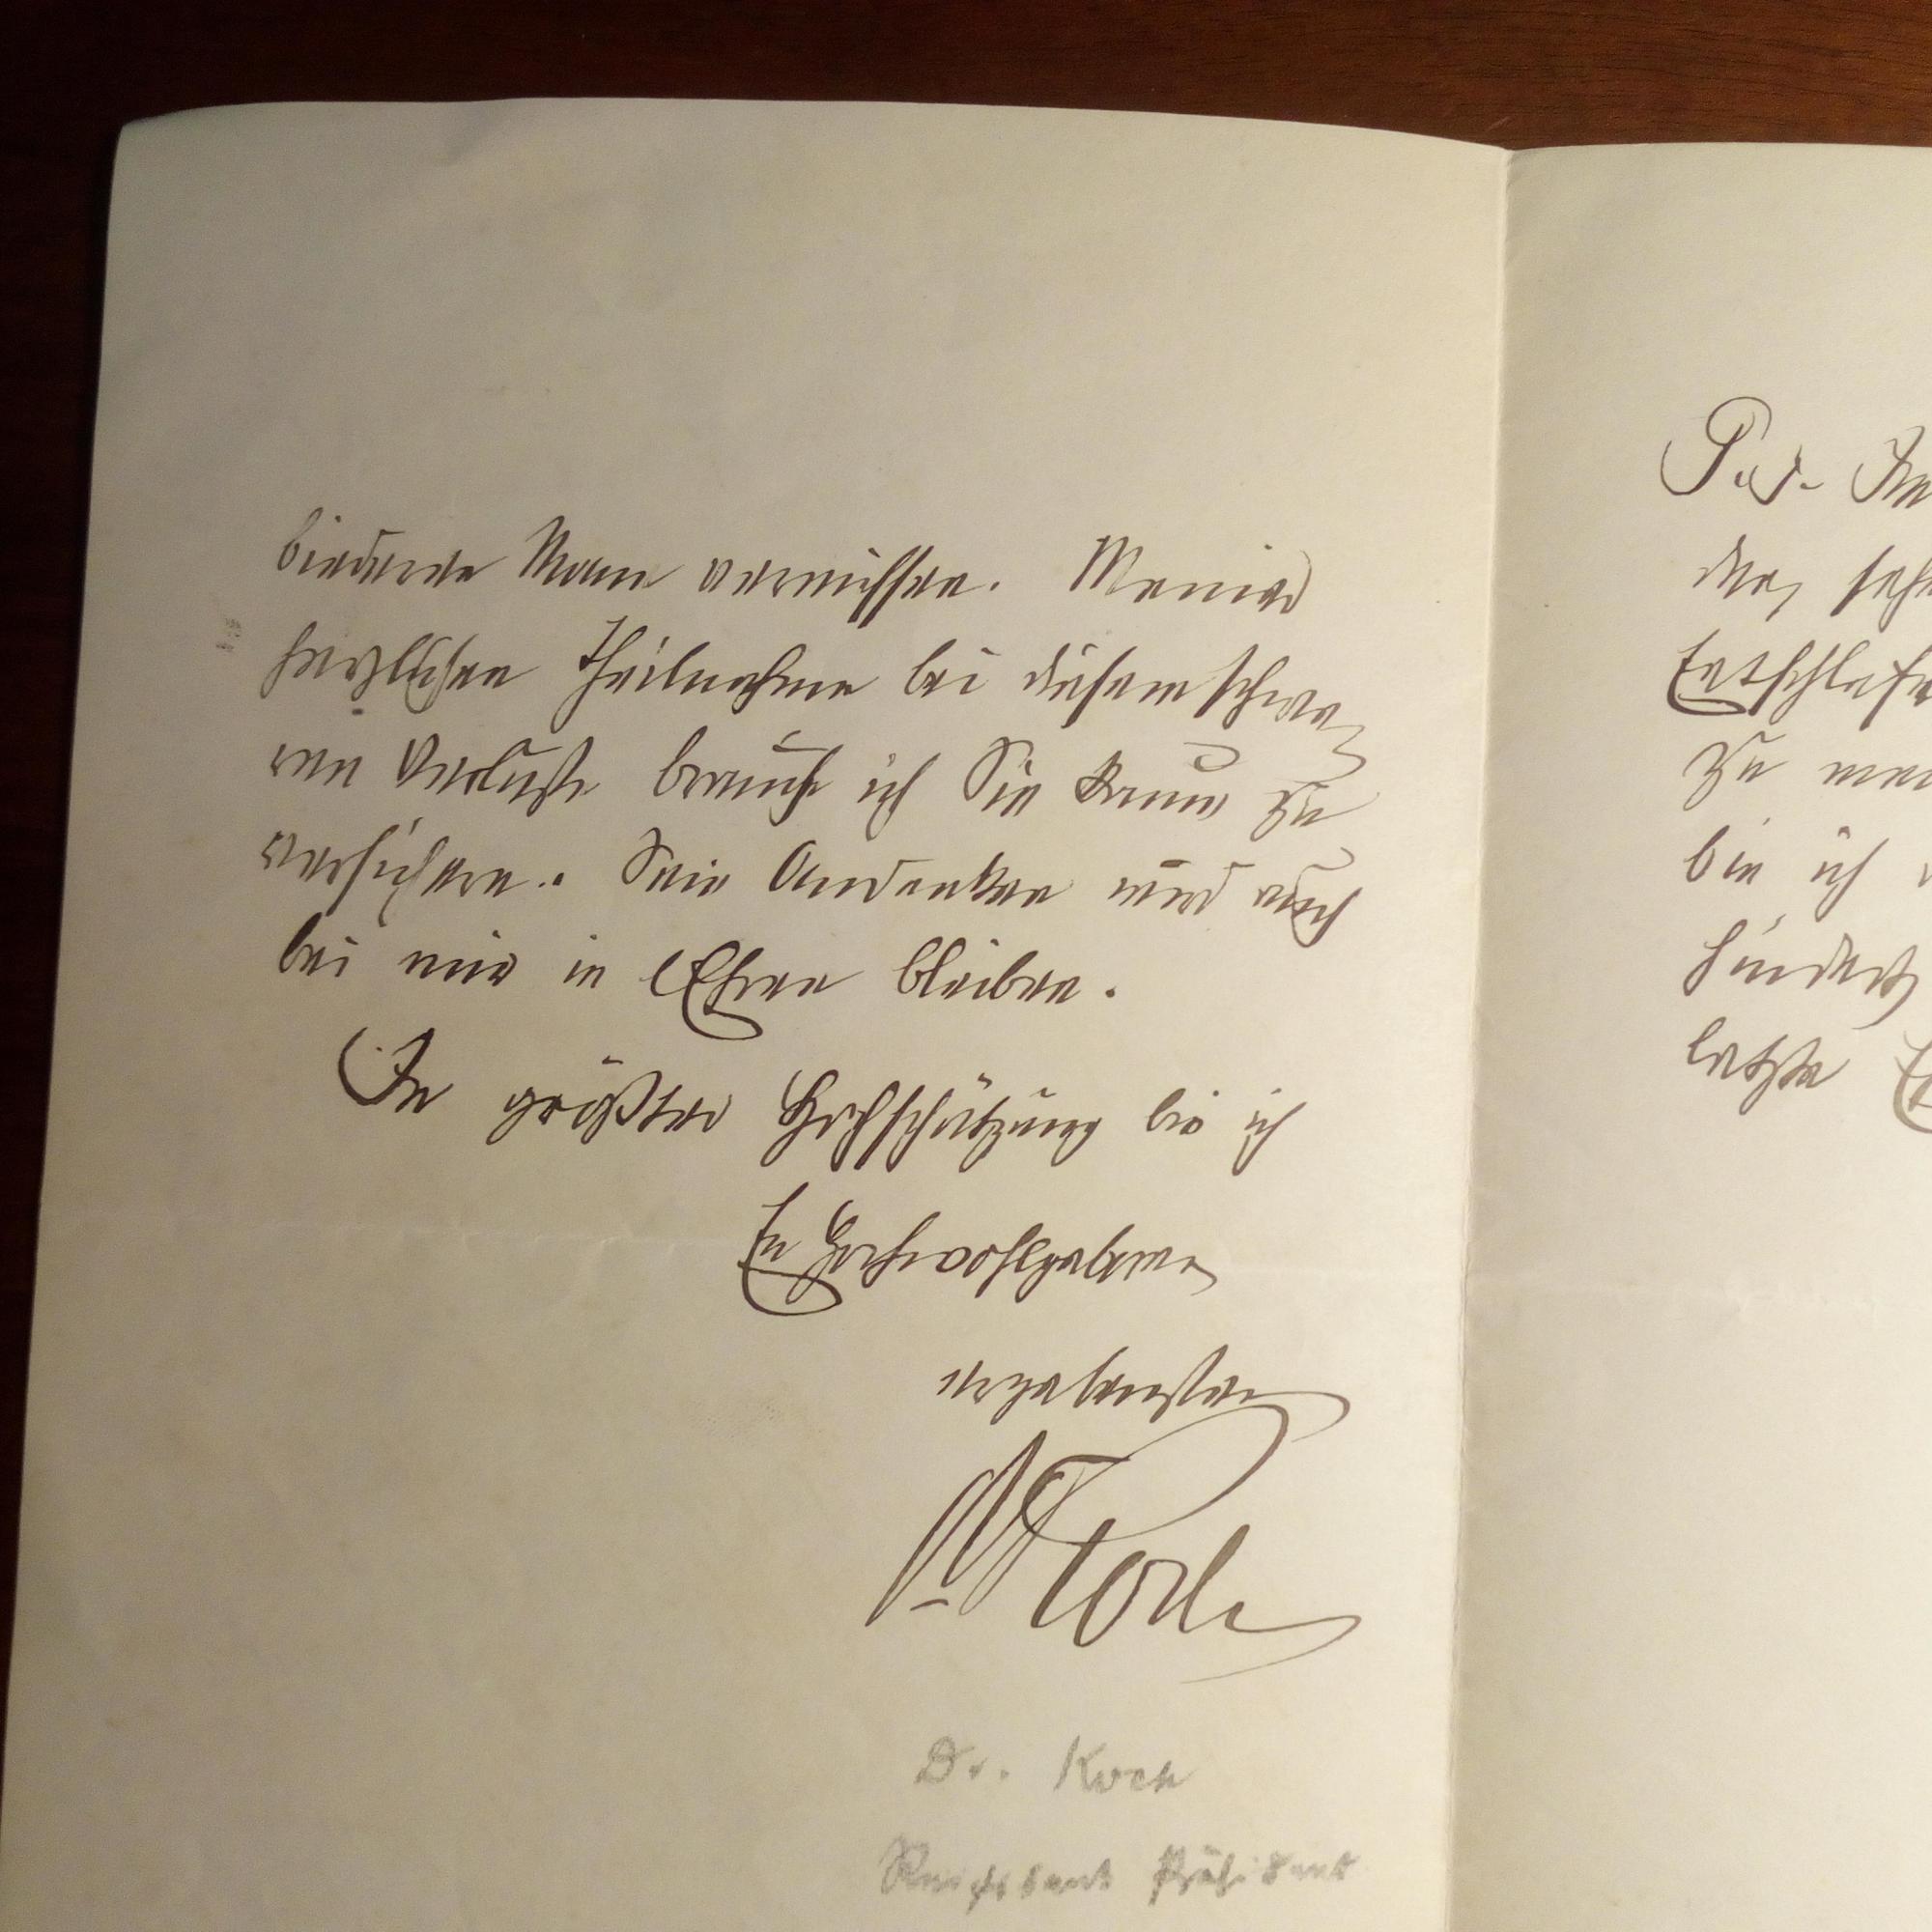 biedere Mann vermissen. Meiner
herzlichen Theilnahme bei diesem schwe-
ren Verluste brauche ich Sie kaum zu
versichern. Sein Andenken wird auch
bei mir in Ehren bleiben.
In größter Hochschätzung bin ich
Ew Hochwohlgeboren
ergebenster
Dr Koch
Dr. Koch
Reichsbank Präsident
der, sehr
Entschlafe
zu mei
bin ich
hindert
letzte